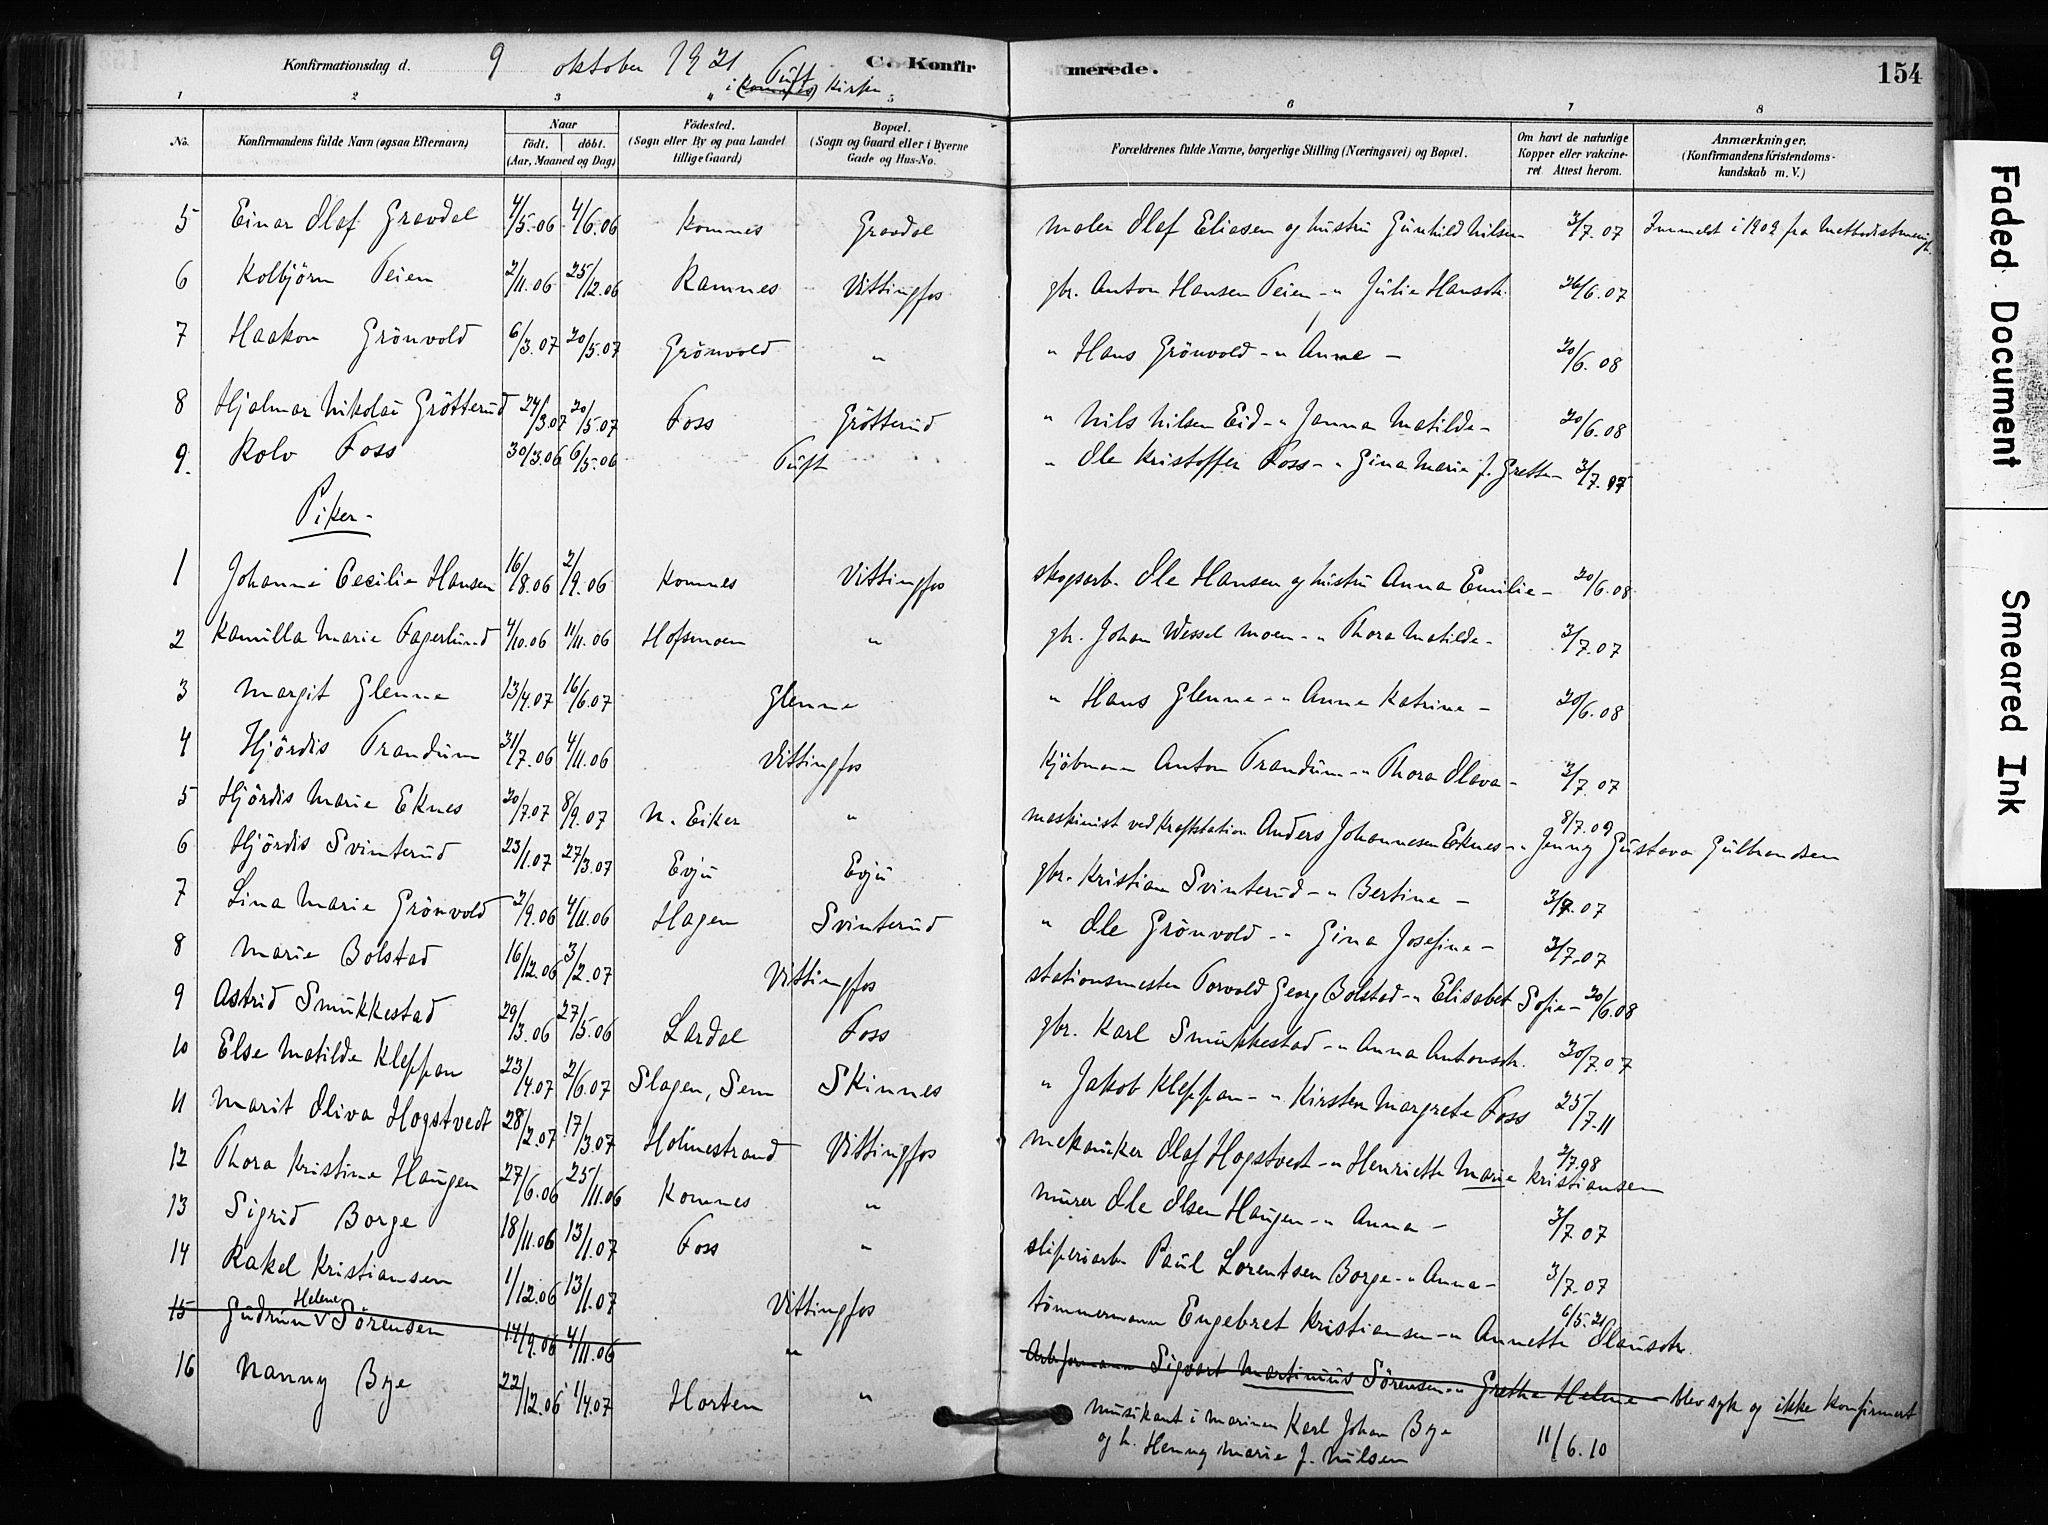 Konfirmationsdag d. 9 oktober 1921 C. Konfirmerede. 154
Tuft
i (Komnes) Kirke
1 2 3 4 5 6 7 8
No. Konfirmandens fulde Navn (ogsaa Efternavn) Naar født. døbt. (Aar, Maaned og Dag) Fødested. (Sogn eller By og paa Landet tillige Gaard) Bopæl. (Sogn og Gaard eller i Byerne Gade og Hus-No. Forældrenes fulde Navne, borgerlige Stilling (Næringsvei) og Bopæl. Om havt de naturlige Kopper eller vakcineret Attest herom. Anmærkninger. (Konfirmandens Kristendomskundskab m. V.)
5 Einar Olaf Gravdal 4/5.06 4/6.06 Komnes Gravdal maler Olaf Eliasen og hustru Gunhild Nilsen 3/7.07 Innmeldt i 1909 fra Methodistmenigh.
6 Kolbjörn Teien 2/11.06 25/12.06 Ramnes Vittingfos gbr. Anton Hansen Teien - " Julie Hansdtr. 26/6.07
7 Haakon Grönvold 6/3.07 20/5.07 Grönvold " " Hans Grönvold - " Anne - 20/6.08
8 Hjalmar Nikolai Grötterud 24/3.07 20/5.07 Foss Grötterud " Nils Nilsen Eid - " Janna Matilde - 20/6.08
9. Rolv Foss 30/3.06 6/5.06 Tuft " Ole Kristoffer Foss - " Gina Marie J. Grette - 3/7.07
Piker -
1 Johanne Cecilie Hansen 16/8.06 2/9.06 Komnes Vittingfos skogsarb. Ole Hansen og hustru Anna Emilie - 20/6.08
2 Kamilla Marie Fagerlund 4/10.06 11/11.06 Hofsmoen " gbr. Johan Wessel Moen - " Thora Matilde - 3/7.07
3 Margit Glenne 13/4.07 16/6.07 Glenne " Hans Glenne - " Anne Katrine - 20/6.08
4 Hjördis Trandum 31/7.06 4/11.06 Vittingfos Kjöbmann Anton Trandum - " Thora Olava - 3/7.07
5 Hjördis Marie Eknes 20/7.07 8/9.07 N. Eiker " maskinist ved kraftstation Anders Johannesen Eknes - " Jenny Gustava Gulbrandsen 8/7.09
6 Hjördis Svinterud 23/1.07 27/3.07 Evju Evju gbr. Kristian Svinterud - " Bertine - 3/7.07
7 Lina Marie Grönvold 2/9.06 4/11.06 Hagen Svinterud " Ole Grönvold - " Gina Josefine - 3/7.07
8 Marie Bolstad 16/12.06 3/2.07 Vittingfos stationsmester Torvald Georg Bolstad - " Elisabet Sofie - 20/6.08
9 Astrid Smukkestad 29/3.06 27/5.06 Lardal Foss gbr. Karl Smukkestad - " Anna Antonsdtr. 30/7.07
10 Else Matilde Kleppan 23/4.07 2/6.07 Slagen, Sem Skinnes " Jakob Kleppan - " Kirsten Margrete Foss 25/7.11
11 Marit Oliva Hogstvedt 28/2.07 17/3.07 Holmestrand Vittingfos mekaniker Olaf Hogstvedt - " Henriette Marie Kristiansen 2/7.98
12 Thora Kristine Haugen 27/6.06 25/11.06 Komnes " murer Ole Olsen Haugen - " Anna - 3/7.07
13 Sigrid Borge 18/11.06 13/1.07 Foss " sliperiarb. Paul Lorentsen Borge - " Anna - 3/7.07
14 Rakel Kristiansen 1/12.06 13/1.07 Vittingfos tömmermann Engebret Kristiansen - " Annette Olausdtr. 6/5.21
15 Gudrun Helene Sörensen 14/9.06 4/11.06 " Arb.formann Sigvart Martinius Sörensen - " Grethe Helene - blev syk og ikke konfirmert
16 Nanny Bye 22/12.06 1/4.07 Horten " musikant i marinen Karl Johan Bye
og h. Henny Marie J. Nilsen 11/6.10
Faded Document
Smeared Ink